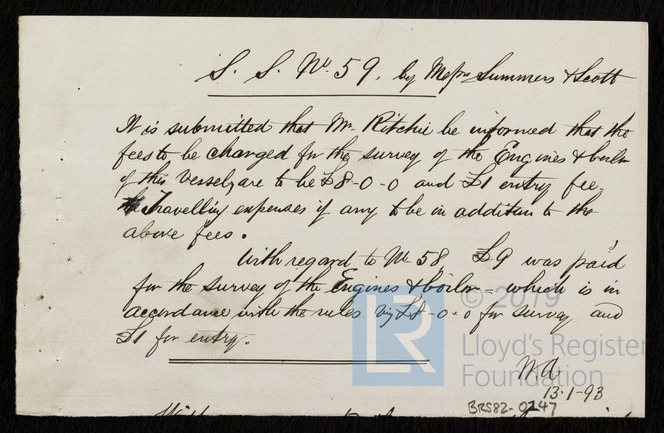 S. S. No. 59. by Messrs Summers & Scott
It is submitted that Mr. Ritchie be informed that the
fees to be charged for the survey of the Engines & boiler
of this vessel, are to be £8-0-0 and £1 entry fee,
Travelling expenses if any to be in addition to the
above fees.
With regard to No 58 £9 was paid
for the survey of the Engines & boiler - which is in
accordance with the rules viz £8-0-0 for survey and
£1 for entry.
13-1-93
BRS82-0147
LR © 2019
Lloyd's Register
Foundation